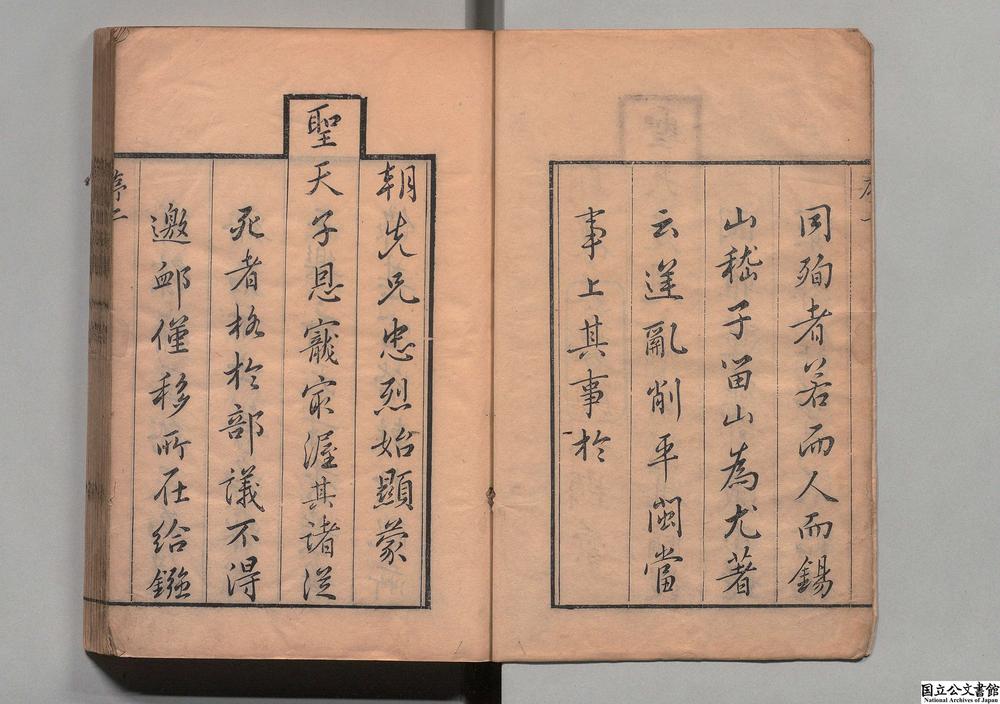 同殉者若而人而錫
山嵇子留山為尤著
云逆亂削平閩當
事上其事於
朝先兄忠烈始顯蒙
聖天子恩寵寂渥其諸從
死者格於部議不得
邀卹僅移所在給鏹
序二
国立公文書館
National Archives of Japan